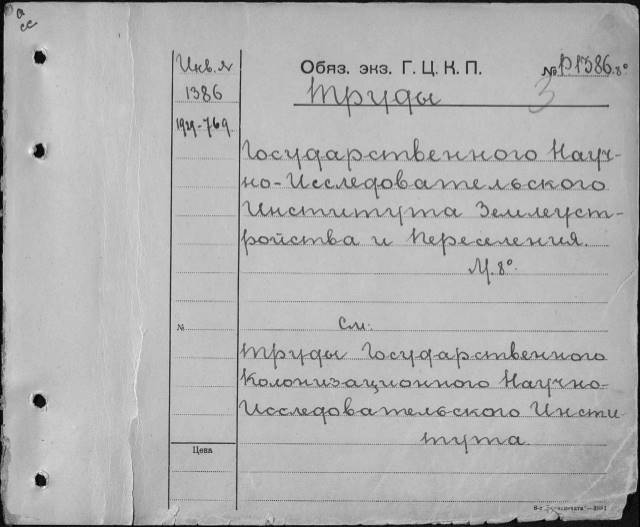 а
сс
Инв. №
1386
1929-769.
Обяз. экз. Г. Ц. К. П.
№ Р1386.8°
3
Труды
Государственного Науч-
но-Исследовательского
Института Землеуст-
ройства и Переселения.
М. 8°.
См.
№
Труды Государственного
Колонизационного Научно-
Исследовательского Инсти-
тута.
Цена